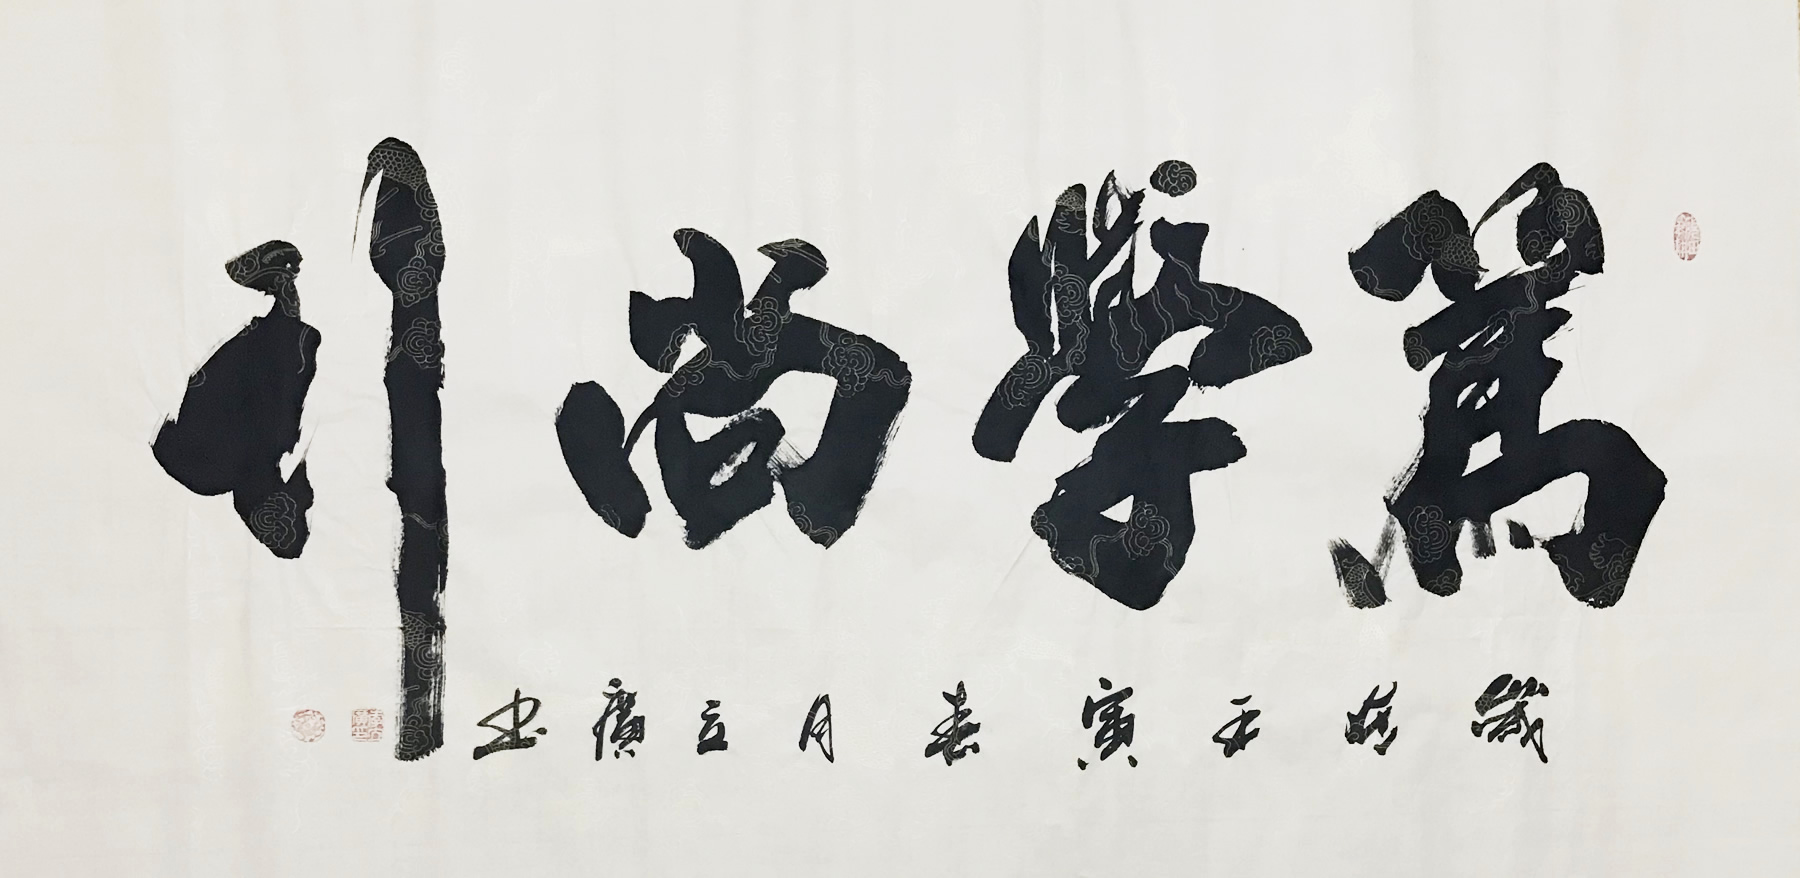 篤學尚行
歲於壬寅春月立廣書